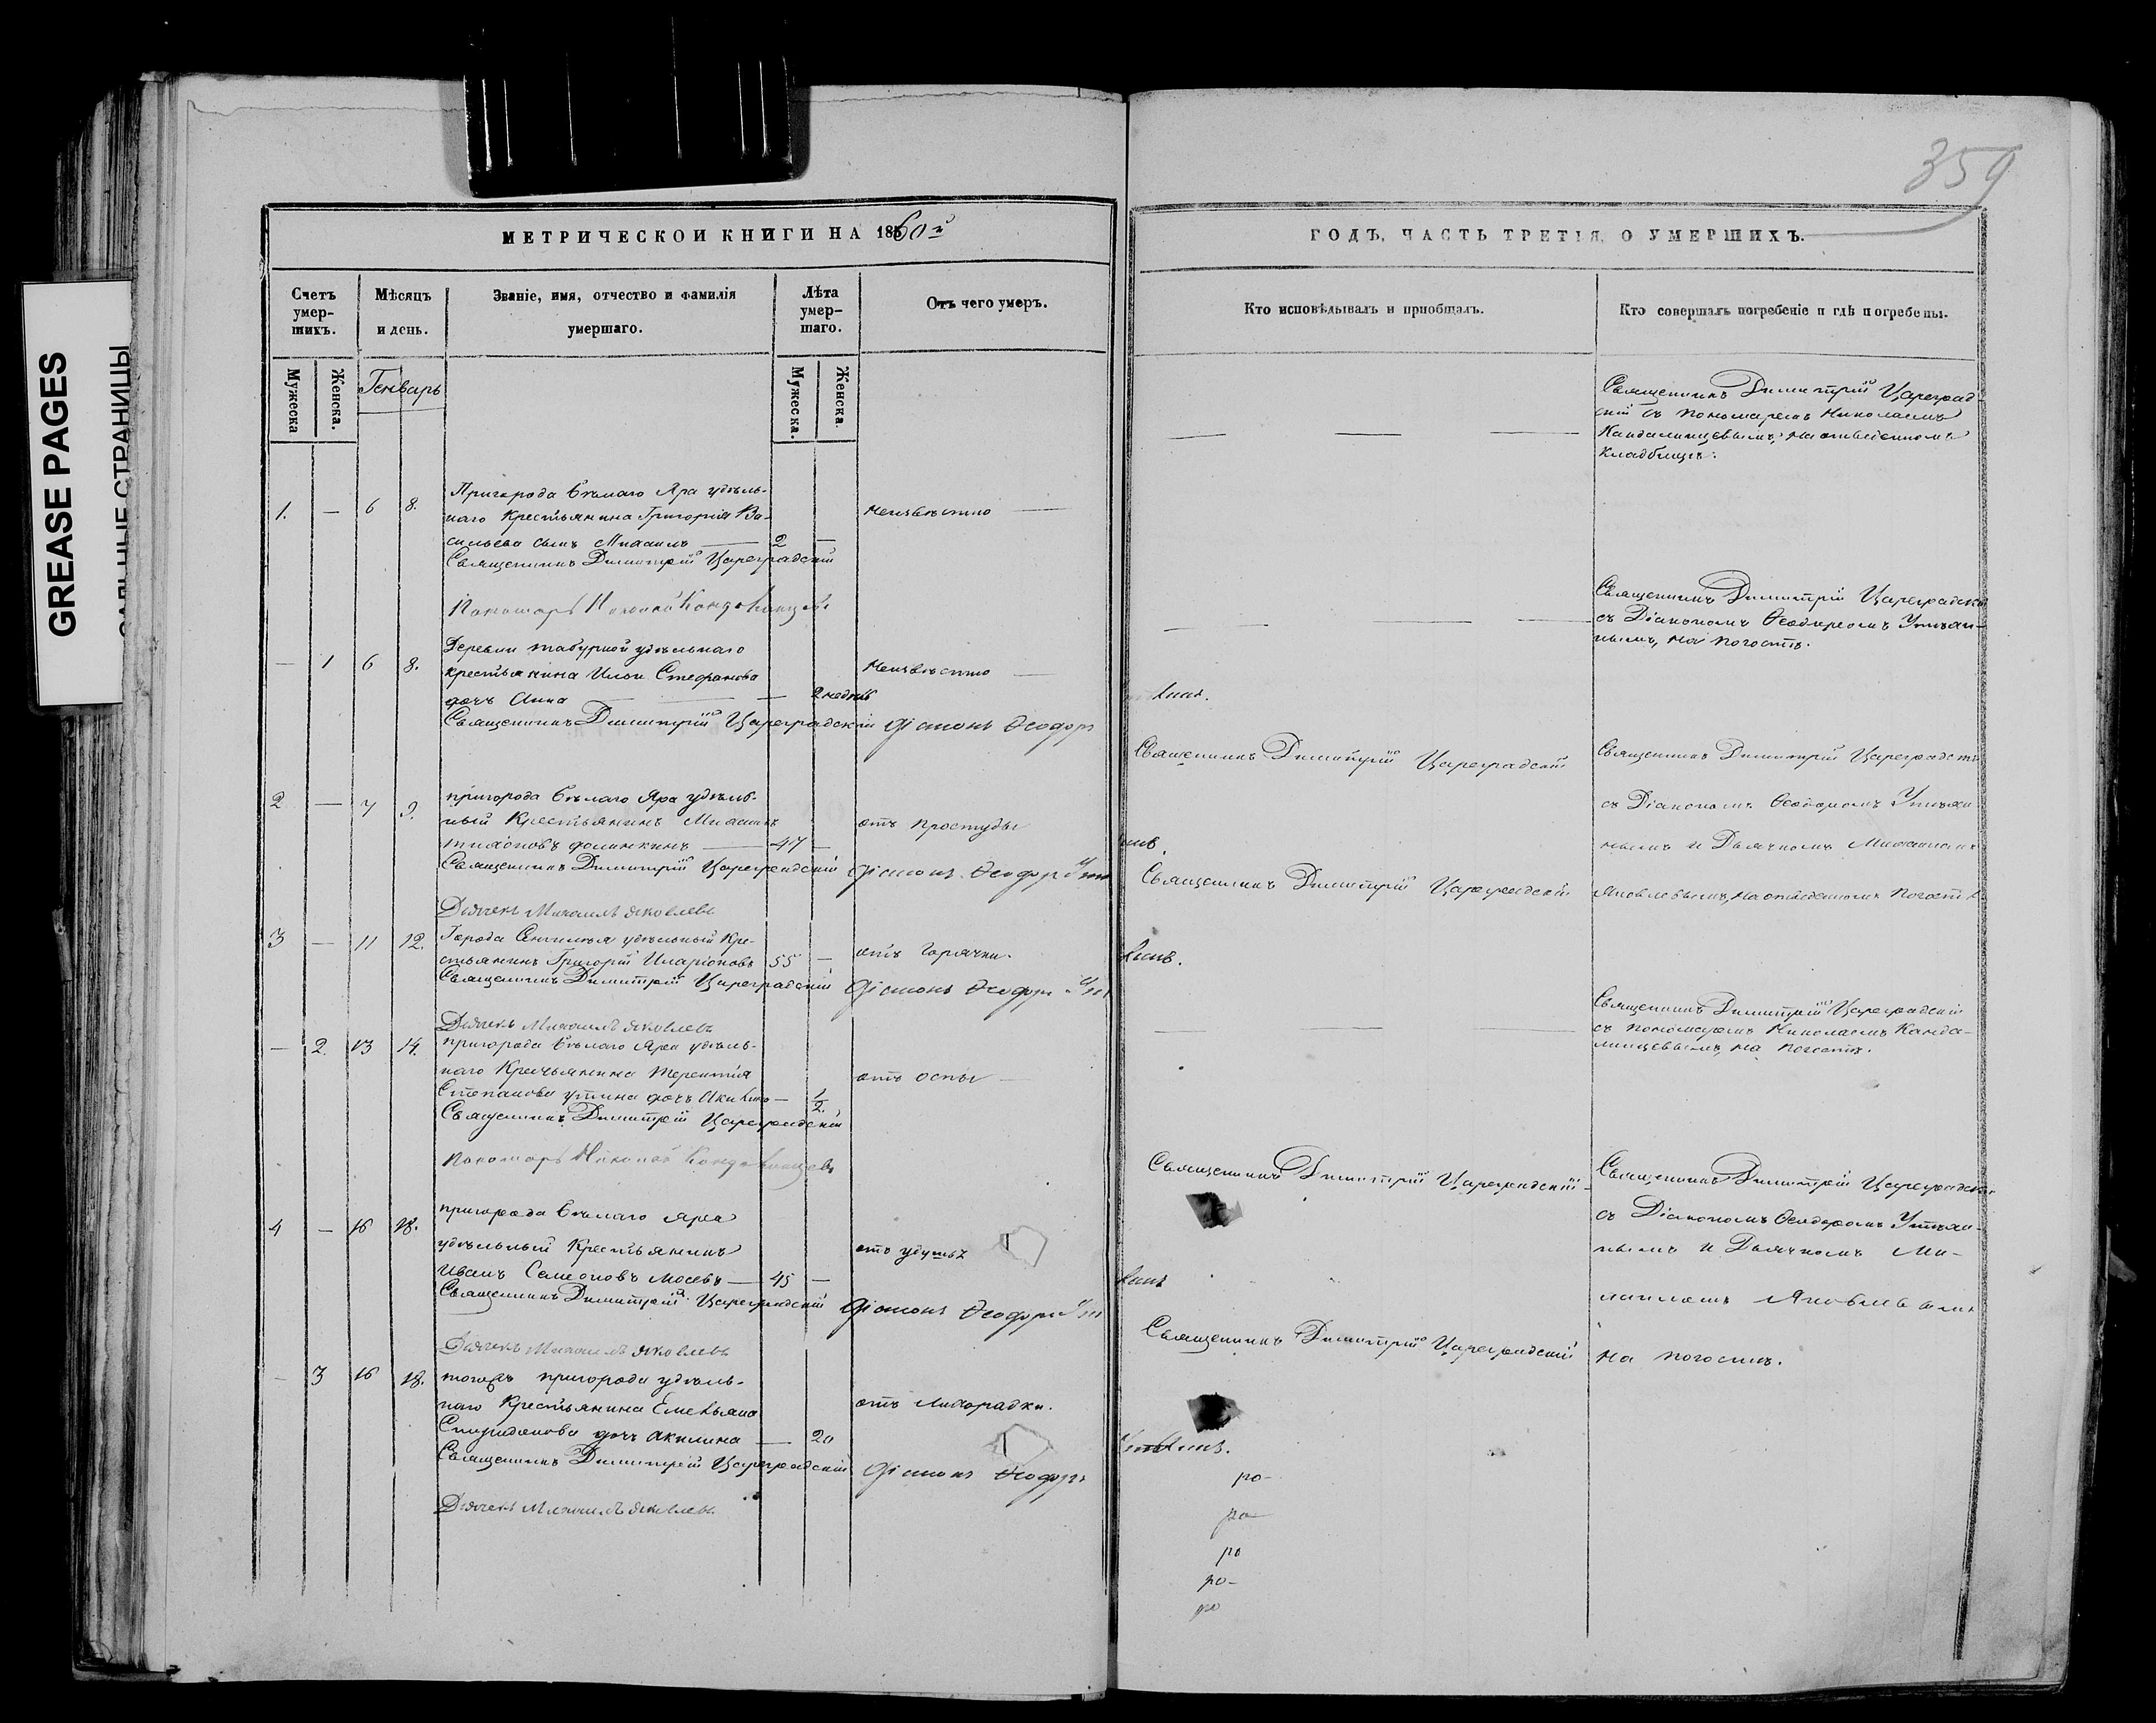 GREASE PAGES
САЛЬНЫЕ СТРАНИЦЫ
359
МЕТРИЧЕСКОЙ КНИГИ НА 1860й
Счетъ умер-шихъ.
Мужеска
Женска.
Мѣсяцъ и день.
Генварь
Званіе, имя, отчество и фамилія умершаго.
Лѣта умер-шаго.
Мужеска.
Женска.
Отъ чего умеръ.
ГОДЪ, ЧАСТЬ ТРЕТІЯ, О УМЕРШИХЪ.
Кто исповѣдывалъ и пріобщалъ.
Кто совершалъ погребеніе и гдѣ погребены.
1. — 6 8.
Пригорода Бѣлаго Яра удѣль-
наго Крестьянина Григорія Ва-
сильева сынъ Михаилъ — 2 —
неизвѣстно
Священникъ Димитрій Цареградскій
Пономарь Николай
Священникъ Димитрій Цареград-
скій съ пономаремъ Николаемъ
на отведенномъ
кладбищѣ.
— 1 6 8.
Деревни удѣльнаго
крестьянина Ильи Стефанова
дочь Анна — 2 недѣль
неизвѣстно
Священникъ Димитрій Цареградскій Діаконъ Ѳеодоръ
Священникъ Димитрій Цареградскій
съ Діакономъ Ѳеодоромъ Утѣхи-
нымъ, на погостѣ.
2 — 7 9.
пригорода Бѣлаго Яра удѣль-
ный Крестьянинъ Михаилъ
Тихоновъ — 47 —
отъ простуды
Священникъ Димитрій Цареградскій Діаконъ Ѳеодоръ
Дьячекъ Михаилъ Яковлевъ
Священникъ Димитрій Цареградскій
Священникъ Димитрій Цареградскій
съ Діакономъ Ѳеодоромъ Утѣхи-
нымъ и Дьячкомъ Михаиломъ
Яковлевымъ, на отведенномъ погостѣ
3 — 11 12.
Города Сенгилея удѣльный Кре-
стьянинъ Григорій Иларіоновъ 55 —
отъ горячки.
Священникъ Димитрій Цареградскій Діаконъ Ѳеодоръ
Дьячекъ Михаилъ Яковлевъ
Священникъ Димитрій Цареградскій
— 2. 13 14.
пригорода Бѣлаго Яра удѣль-
наго Крестьянина Терентія
Степанова дочь — 1/2.
отъ оспы —
Священникъ Димитрій Цареградскій
Пономарь Николай
Священникъ Димитрій Цареградскій
съ пономаремъ Николаемъ
на погостѣ.
4 — 16 18.
пригорода Бѣлаго Яра
удѣльный Крестьянинъ
Иванъ Семеоновъ — 45 —
отъ удушья
Священникъ Димитрій Цареградскій Діаконъ Ѳеодоръ
Дьячекъ Михаилъ Яковлевъ
Священникъ Димитрій Цареградскій
Священникъ Димитрій Цареградскій
съ Діакономъ Ѳеодоромъ Утѣхи-
нымъ и Дьячкомъ Ми-
хаиломъ Яковлевымъ
на погостѣ.
— 3 16 18.
тогожъ пригорода удѣль-
наго Крестьянина Емельяна
Спиридонова дочь Акилина — 20
отъ лихорадки.
Священникъ Димитрій Цареградскій Діаконъ Ѳеодоръ
Дьячекъ Михаилъ Яковлевъ
Священникъ Димитрій Цареградскій